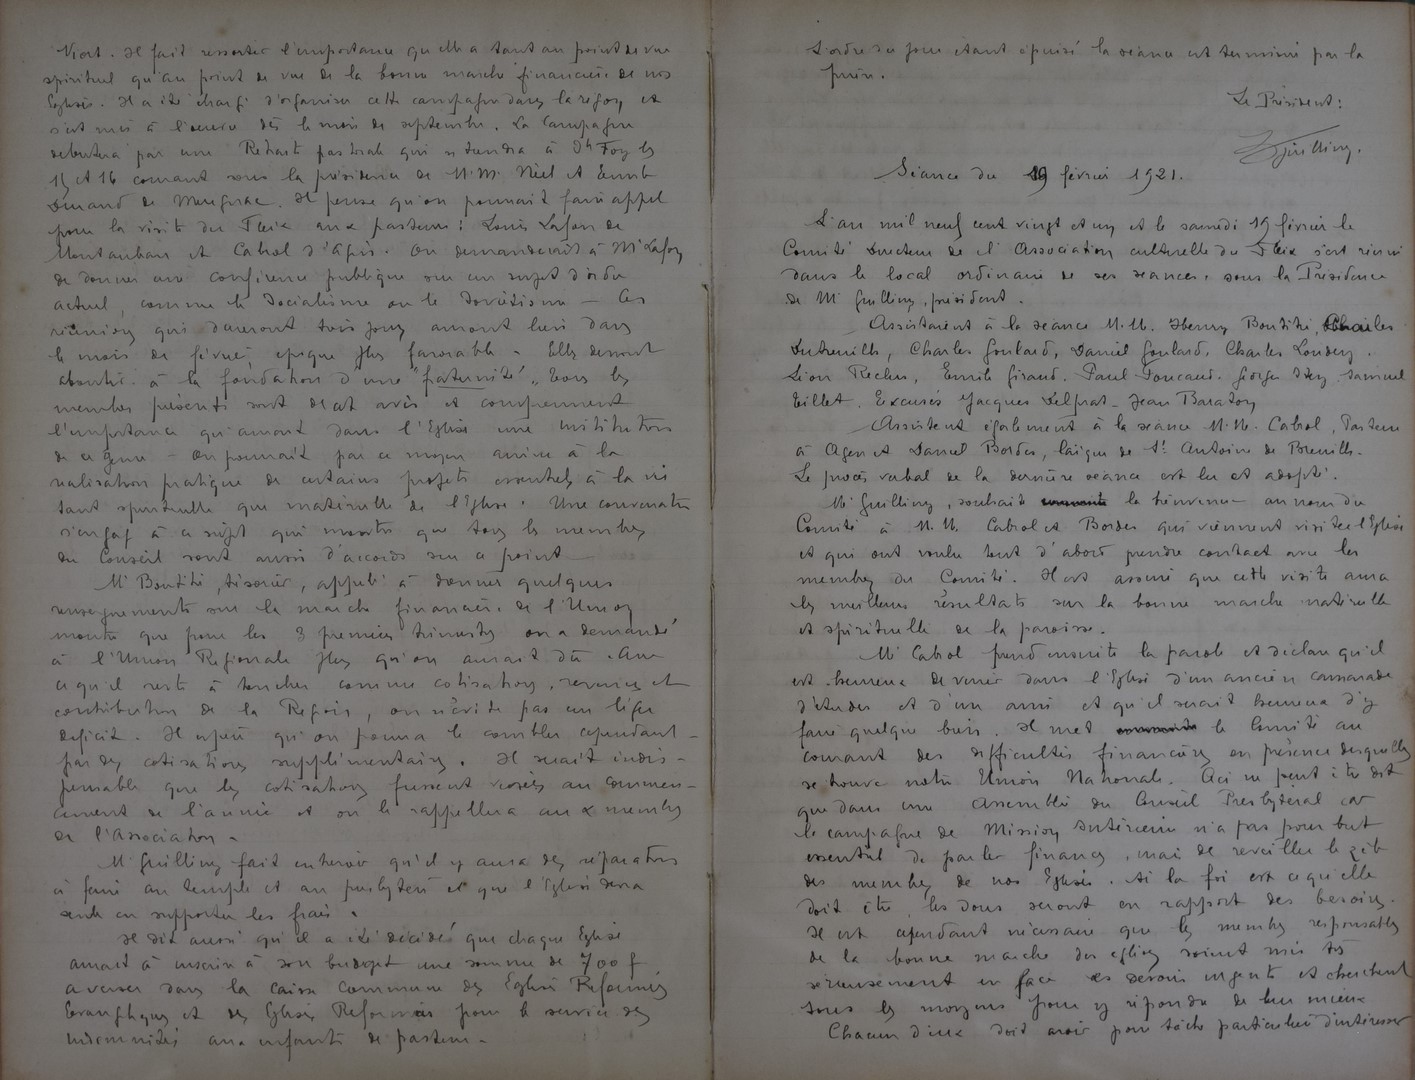 Niort. Il fait ressortir l'importance qu'elle a tant au point de vue
spirituel qu'au point de vue de la bonne marche financière de nos
Eglises. Il a été chargé d'organiser cette campagne dans la région et
s'est mis à l'oeuvre dès le mois de septembre. La Campagne
débutera par une Retraite pastorale qui se tiendra à Ste Foy les
15 et 16 courant sous la présidence de M.M. Niel et Emile
Durand de . Il pense qu'on pourrait faire appel
pour la visite du Fleix aux pasteurs : Louis Lafon de
Montauban et Cabrol d'Agen. On demanderait à Mr Lafon
de donner une conférence publique sur un sujet d'ordre
actuel, comme le Socialisme ou le Soviétisme - Ces
réunions qui dureront trois jours auront lieu dans
le mois de février, époque plus favorable. Elles devront
aboutir à la fondation d'une "fraternité". Tous les
membres présents sont de cet avis et comprennent
l'importance qu'aurait dans l'Eglise une institution
de ce genre - On pourrait par ce moyen arriver à la
réalisation pratique de certains projets essentiels à la vie
tant spirituelle que matérielle de l'Eglise. Une conversation
s'engage à ce sujet qui montre que tous les membres
du Conseil sont aussi d'accord sur ce point
Mr Boutitié, trésorier, appelé à donner quelques
renseignements sur la marche financière de l'Union
montre que pour les 3 premiers trimestres on a demandé
à l'Union Régionale plus qu'on aurait dû. Avec
ce qu'il reste à toucher comme cotisations, revenus et
contribution de la Région, on n'évite pas un léger
déficit. Il espère qu'on pourra le combler cependant -
par des cotisations supplémentaires. Il serait indis-
pensable que les cotisations fussent versées au commen-
cement de l'année et on le rappellera aux membres
de l'Association -
Mr Guilling fait entrevoir qu'il y aura des réparations
à faire au temple et au presbytère et que l'Eglise sera
seule à en supporter les frais.
Il dit aussi qu'il a été décidé que chaque Eglise
aurait à inscrire à son budget une somme de 700f
à verser dans la caisse commune des Eglises Réformées
Evangéliques et des Eglises Réformées pour le service des
indemnités aux enfants de pasteur -
L'ordre du jour étant épuisé la séance est terminée par la
prière.
Le Président :
Guilling.
Séance du 19 février 1921.
L'an mil neuf cent vingt et un et le samedi 19 février le
Comité Directeur de l'Association cultuelle du Fleix s'est réuni
dans le local ordinaire de ses séances, sous la Présidence
de Mr Guilling, président.
Assistaient à la séance M.M. Henry Boutitié, Charles
Dutreuilh, Charles Goulard, Daniel Goulard, Charles Loudey.
Léon Reclus, Emile Giraud. Paul Foucaud. Georges , Samuel
Tillet. Excusés Jacques Delprat - Jean Baraton
Assistent également à la séance M.M. Cabrol, Pasteur
à Agen et Daniel Bordes, laïque de St Antoine de Breuilh.
Le procès verbal de la dernière séance est lu et adopté.
Mr Guilling, souhaite la bienvenue au nom du
Comité à M.M. Cabrol et Bordes qui viennent visiter l'Eglise
et qui ont voulu tout d'abord prendre contact avec les
membres du Comité. Il est assuré que cette visite aura
les meilleurs résultats sur la bonne marche matérielle
et spirituelle de la paroisse.
Mr Cabrol prend ensuite la parole et déclare qu'il
est heureux de venir dans l'Eglise d'un ancien camarade
d'études et d'un ami et qu'il serait heureux d'y
faire quelque bien. Il met le Comité au
courant des difficultés financières en présence desquelles
se trouve notre Union Nationale. Ceci ne peut être dit
que dans une assemblée du Conseil Presbytéral car
la campagne de Mission Intérieure n'a pas pour but
essentiel de parler finances, mais de réveiller le zèle
des membres de nos Eglises. Si la foi est ce qu'elle
doit être, les dons seront en rapport des besoins.
Il est cependant nécessaire que les membres responsables
de la bonne marche des églises soient mis très
sérieusement en face des devoirs urgents et cherchent
tous les moyens pour y répondre de leur mieux
Chacun d'eux doit avoir pour tâche particulière d'intéresser